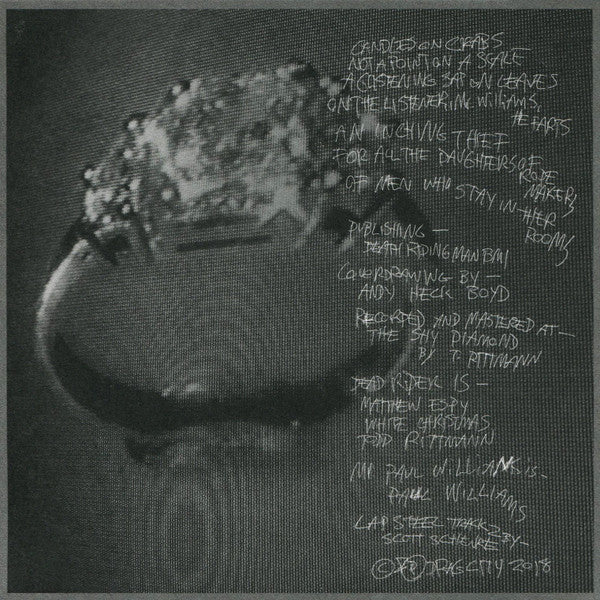 CANDLES ON CRABS
NOT A POINT ON A SCALE
A GLISTENING SAP ON LEAVES
ON THE LISTENER MR WILLIAMS,
HE FARTS
AN INCHING THIEF
FOR ALL THE DAUGHTERS OF
ROPE
MAKERS
OF MEN WHO STAY IN THEIR
ROOMS
PUBLISHING —
DEATH RIDING MAN BMI
COVER DRAWING BY —
ANDY HECK BOYD
RECORDED AND MASTERED AT —
THE SHY DIAMOND
BY T. RITTMANN
DEAD RIDER IS —
MATTHEW ESPY
WHITE CHRISTMAS
TODD RITTMANN
MR PAUL WILLIAMS IS —
PAUL WILLIAMS
LAP STEEL TRACK 2 BY —
SCOTT SCHENKE
DRAG CITY 2018